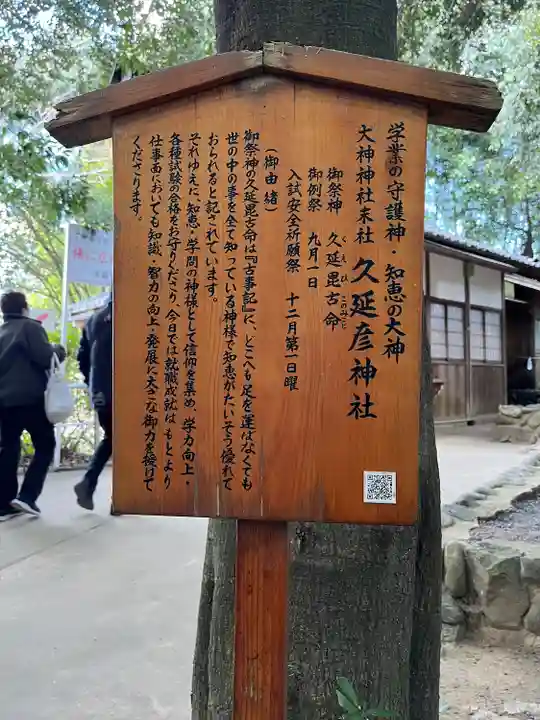 学業の守護神・知恵の大神
大神神社末社 久延彦神社
御祭神 久延毘古命
くえひこのみこと
御例祭 九月一日
入試安全祈願祭 十二月第一日曜
（御由緒）
御祭神の久延毘古命は『古事記』に、どこへも足を運ばなくても
世の中の事を全て知っている神様で知恵がたいそう優れて
おられると記されています。
それゆえに、知恵・学問の神様として信仰を集め、学力向上・
各種試験の合格をお守りくださり、今日では就職成就はもとより
仕事面においても知識、智力の向上・発展に大きな御力を授けて
くださります。